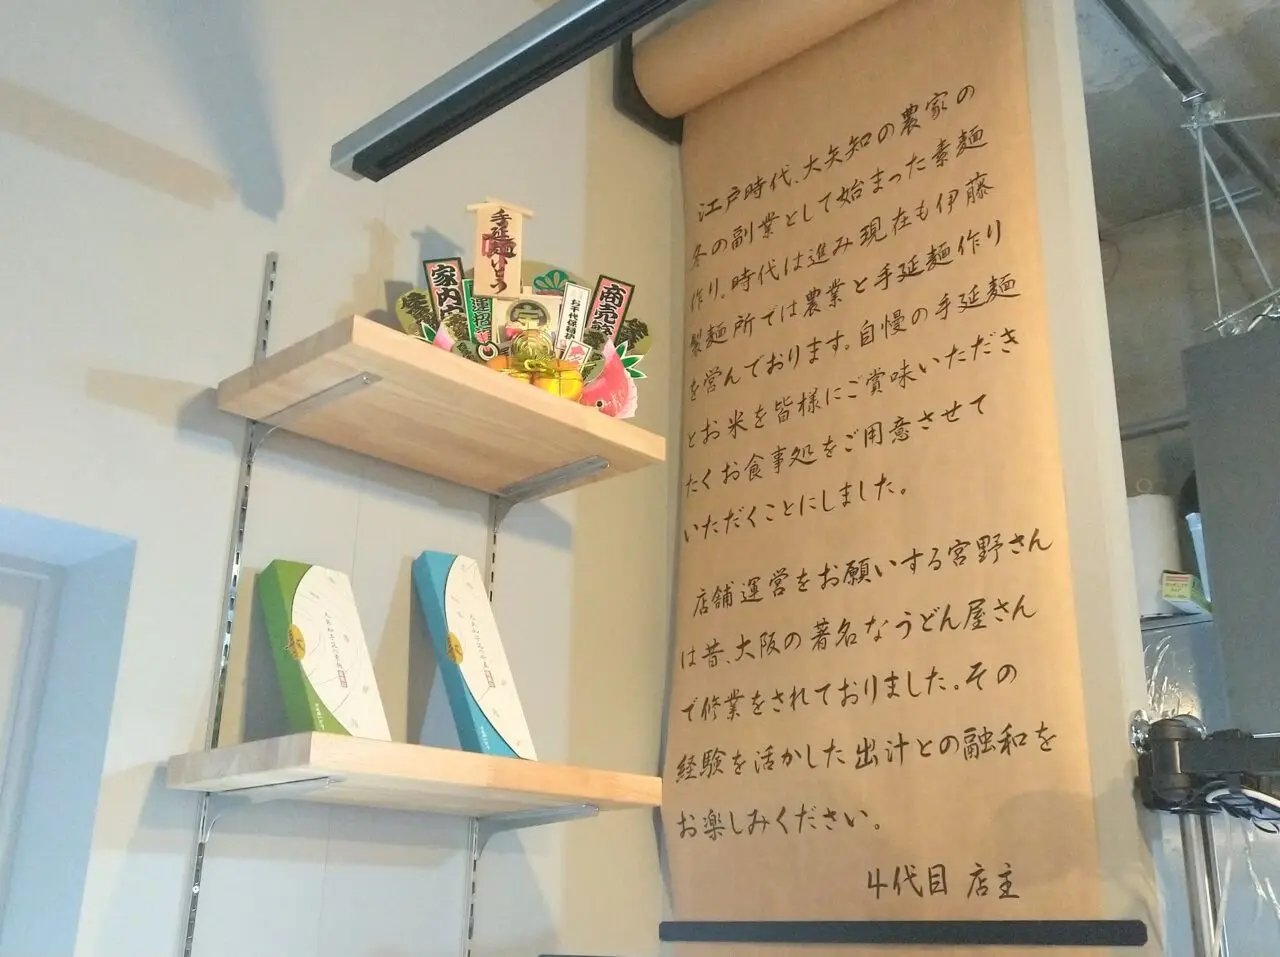 江戸時代、大矢知の農家の
冬の副業として始まった素麺
作り。時代は進み現在も伊藤
製麺所では農業と手延麺作り
を営んでおります。自慢の手延麺
とお米を皆様にご賞味いただき
たくお食事処をご用意させて
いただくことにしました。
店舗運営をお願いする宮野さん
は昔、大阪の著名なうどん屋さん
で修業をされておりました。その
経験を活かした出汁との融和を
お楽しみください。
4代目 店主
手延麺
家内
商売